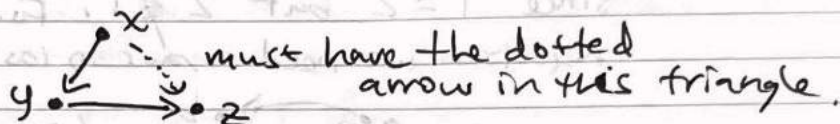 x
must have the dotted
arrow in this triangle.
y
z